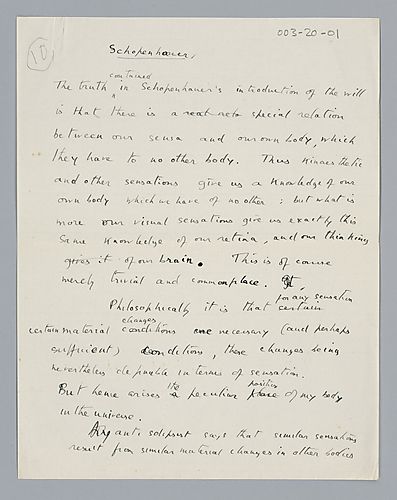 003-20-01
10
Schopenhauer.
The truth contained in Schopenhauer's introduction of the will
is that there is a special relation
between our sensa and our own body, which
they have to no other body. Thus kinaesthetic
and other sensations give us a knowledge of our
own body which we have of no other ; but what is
more our visual sensations give us exactly this
same knowledge of our retina, and our thinking
gives it of our brain. This is of course
merely trivial and commonplace.
Philosophically it is that for any sensation certain
certain material changes conditions are necessary (and perhaps
sufficient) conditions, these changes being
nevertheless definable in terms of sensation.
But hence arises the peculiar position place of my body
in the universe.
Any anti solipsist says that similar sensations
result from similar material changes in other bodies